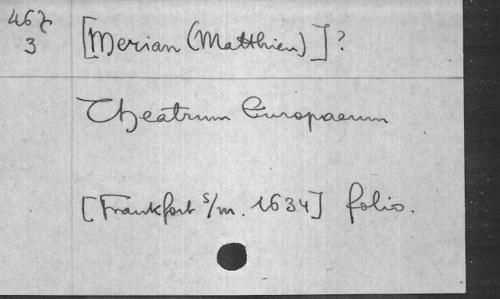 467
3
[Merian (Matthieu)]?
Theatrum Europaeum
[Frankfort s/m. 1634] folio.